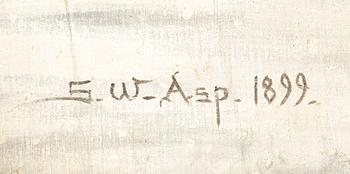 S.W-Asp. 1899.